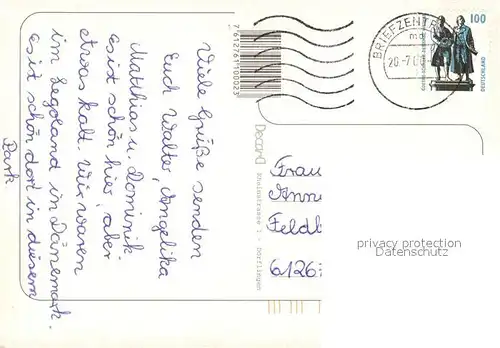 Viele Grüße senden
Euch Walter, Angelika
Matthias u. Dominik.
es ist schön hier, aber
etwas kalt. Wir waren
im Legoland in Dänemark.
es ist schön dort in diesem
Park
7612781100023
Decard
Rheinstrasse 1 - Dörflingen
BRIEFZENTR
md
20-7.00
100
DEUTSCHLAND
Frau
Anne
Feldb
6126
privacy protection
Datenschutz